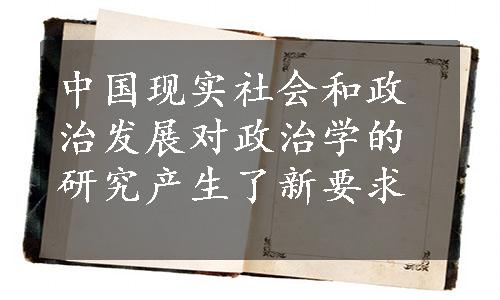 中国现实社会和政
治发展对政治学的
研究产生了新要求